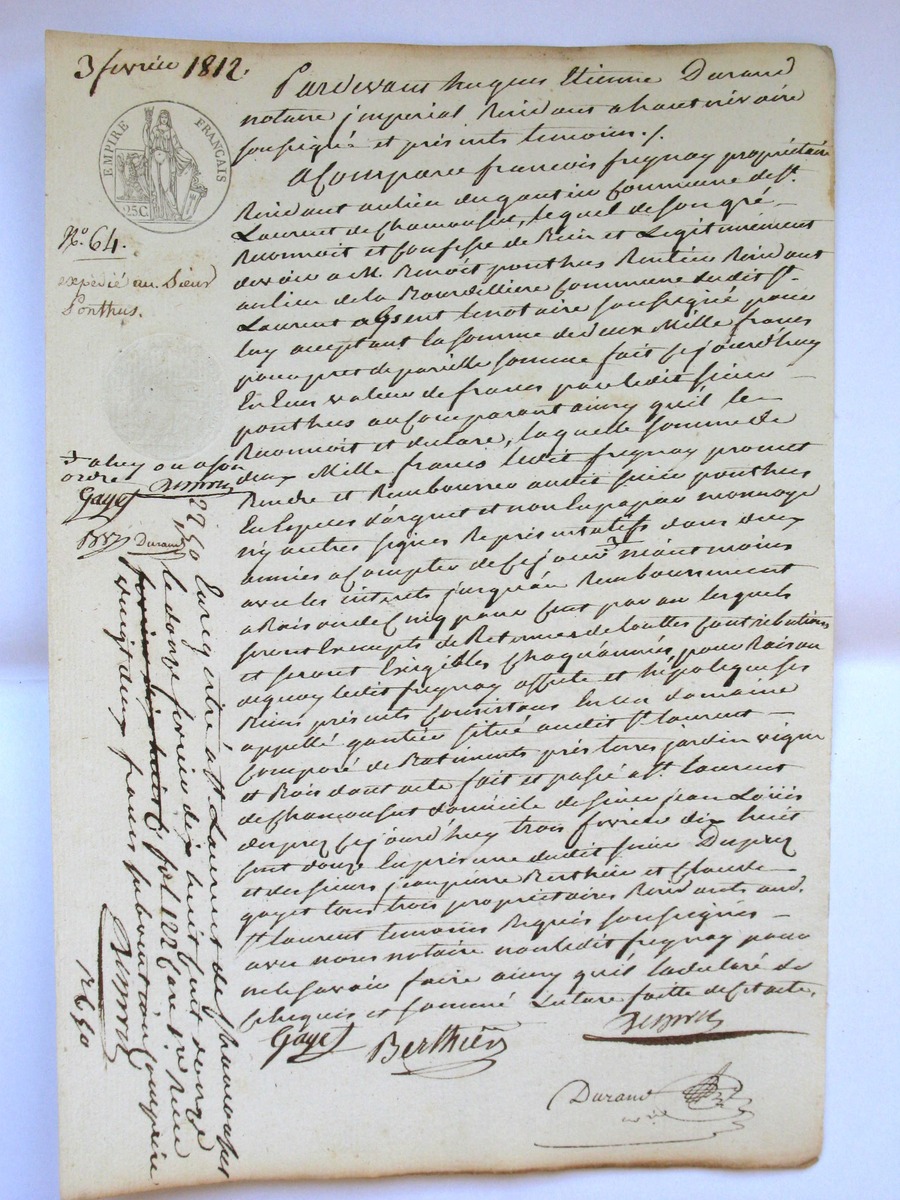 3 fevrier 1812.
EMPIRE FRANÇAIS
25C.
N.º 64.
expedié au Sieur
Ponthus.
Pardevant hugues Etienne Durand
notaire jmperial Residant a haute rivoire
soussigné et présents temoins ./.
a Comparu francois freynay propriétaire
Residant au lieu du gantieu Commune de St.
Laurent de Chamousset, lequel de son gré
Reconnoit et Confesse de Bien et Legitimément
devoir a M. Benoit ponthus Rentier Residant
au lieu de la Bourdilliere Commune dudit St.
Laurent absent le notaire soussigné pour
luy acceptant la somme de deux Mille francs
pour pret de pareille somme fait cejourd'huy
En Ecus valeur de francs par ledit sieur
ponthus au Comparant ainsy qu'il le
Reconnoit et declare, laquelle somme de
deux Mille francs ledit freynay promet
Rendre et Rembourser audit sieur ponthus
En Especes d'argent et non En papier monnoye
ny autres signes Représentatifs dans deux
années a Compter de cejour néant moins
avec les intérets jusqu'au Remboursement
a Raison de Cinq pour Cent par an lesquels
seront Exempts de Retenues de touttes Contributions
et seront Exigibles Chaqu'année, pour Raison
de quoy ledit freynay affecte et hépoteque ses
Biens présents Consistans En un domaine
appellé gantieu situé audit St. laurent
Composé de Batiments près terres jardin vigne
et Bois dont acte fait et passé a St. laurent
de Chamousset domicile de sieur jean Loüis
duprez cejourd'huy trois fevrier dix huit
Cent douze En présence dudit sieur Duprez
et des sieurs jean pierre Berthier et Claude
gayet tous trois propriétaires Residants aud.
St. laurent temoins Requis soussignés
avec nous notaire non ledit freynay pour
ne le savoir faire ainsy qu'il la declaré de
ce Requis et sommé Lecture faitte de cet acte.
Gayet Berthier
Durand
a luy ou a son
ordre
Gayet
Durand
22 40
Enregistré à St. Laurent de Chamousset
le douze fevrier dix huit cent douze
fol. 122
vingt deux francs subvention comprise